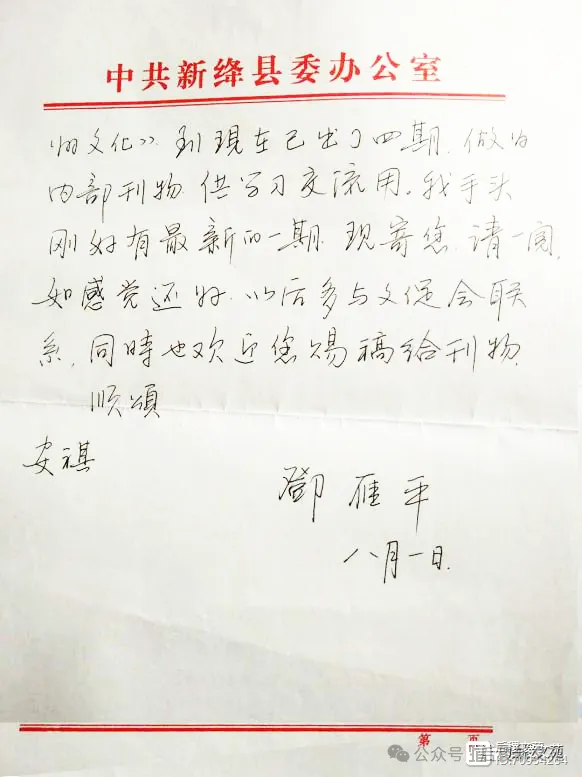 中共新绛县委办公室
州文化》到現在已出了四期，做为
内部刊物供学习交流用。我手头
刚好有最新的一期，现寄您，请一阅，
如感觉还好，以后多与文促会联
系，同時也欢迎您赐稿给刊物，
顺颂
安祺
鄧雁平
八月一日.
第 页
公众号